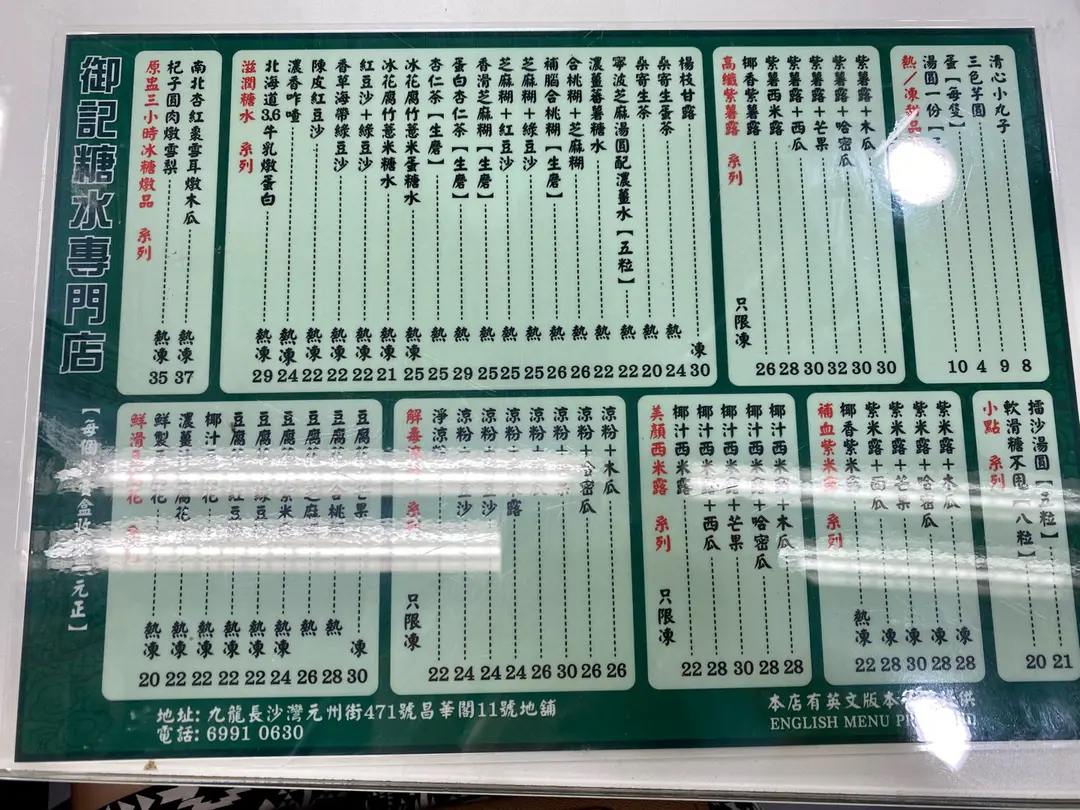 御記糖水專門店
【每個 盒收 元正】
原盅三小時冰糖燉品 系列
杞子圓肉燉雪梨 熱凍 35
南北杏紅棗雪耳燉木瓜 熱凍 37
滋潤糖水 系列
北海道3.6牛乳燉蛋白 熱凍 29
濃香咋喳 熱凍 24
陳皮紅豆沙 熱凍 22
香草海帶綠豆沙 熱凍 22
紅豆沙+綠豆沙 熱凍 22
冰花腐竹薏米糖水 熱凍 21
冰花腐竹薏米蛋糖水 熱凍 25
杏仁茶【生磨】 熱 25
蛋白杏仁茶【生磨】 熱 29
香滑芝麻糊【生磨】 熱 25
芝麻糊+紅豆沙 熱 25
芝麻糊+綠豆沙 熱 25
補腦合桃糊【生磨】 熱 26
合桃糊+芝麻糊 熱 26
濃薑蕃薯糖水 熱 22
寧波芝麻湯圓配濃薑水【五粒】 熱 22
桑寄生茶 熱 20
桑寄生蛋茶 熱 24
楊枝甘露 凍 30
高纖紫薯露 系列
只限凍
椰香紫薯露 26
紫薯西米露 28
紫薯露+西瓜 30
紫薯露+芒果 32
紫薯露+哈密瓜 30
紫薯露+木瓜 30
熱/凍甜品
湯圓一份【 10
蛋【每隻】 4
三色芋圓 9
清心小丸子 8
鮮滑 花
鮮製豆 花 熱凍 20
濃薑汁 腐花 熱凍 22
椰汁 花 熱凍 22
豆腐 紅豆 熱凍 22
豆腐 綠豆 熱凍 22
豆腐 紫米 熱凍 24
豆腐 芝麻 熱 26
豆腐 合桃 熱 28
豆腐 芒果 凍 30
解毒涼 系列
只限凍
淨涼粉 22
涼粉 沙 24
涼粉 沙 24
涼粉 露 24
涼粉+ 26
涼粉+ 30
涼粉+哈密瓜 26
涼粉+木瓜 26
美顏西米露 系列
只限凍
椰汁西米露 22
椰汁西米露+西瓜 28
椰汁西米露+芒果 30
椰汁西米露+哈密瓜 28
椰汁西米露+木瓜 28
補血紫米露 系列
椰香紫米露 熱凍 22
紫米露+西瓜 凍 28
紫米露+芒果 凍 30
紫米露+哈密瓜 凍 28
紫米露+木瓜 凍 28
小點 系列
軟滑糖不甩【八粒】 20
擂沙湯圓【五粒】 21
地址: 九龍長沙灣元州街471號昌華閣11號地舖
電話: 6991 0630
本店有英文版本 供
ENGLISH MENU